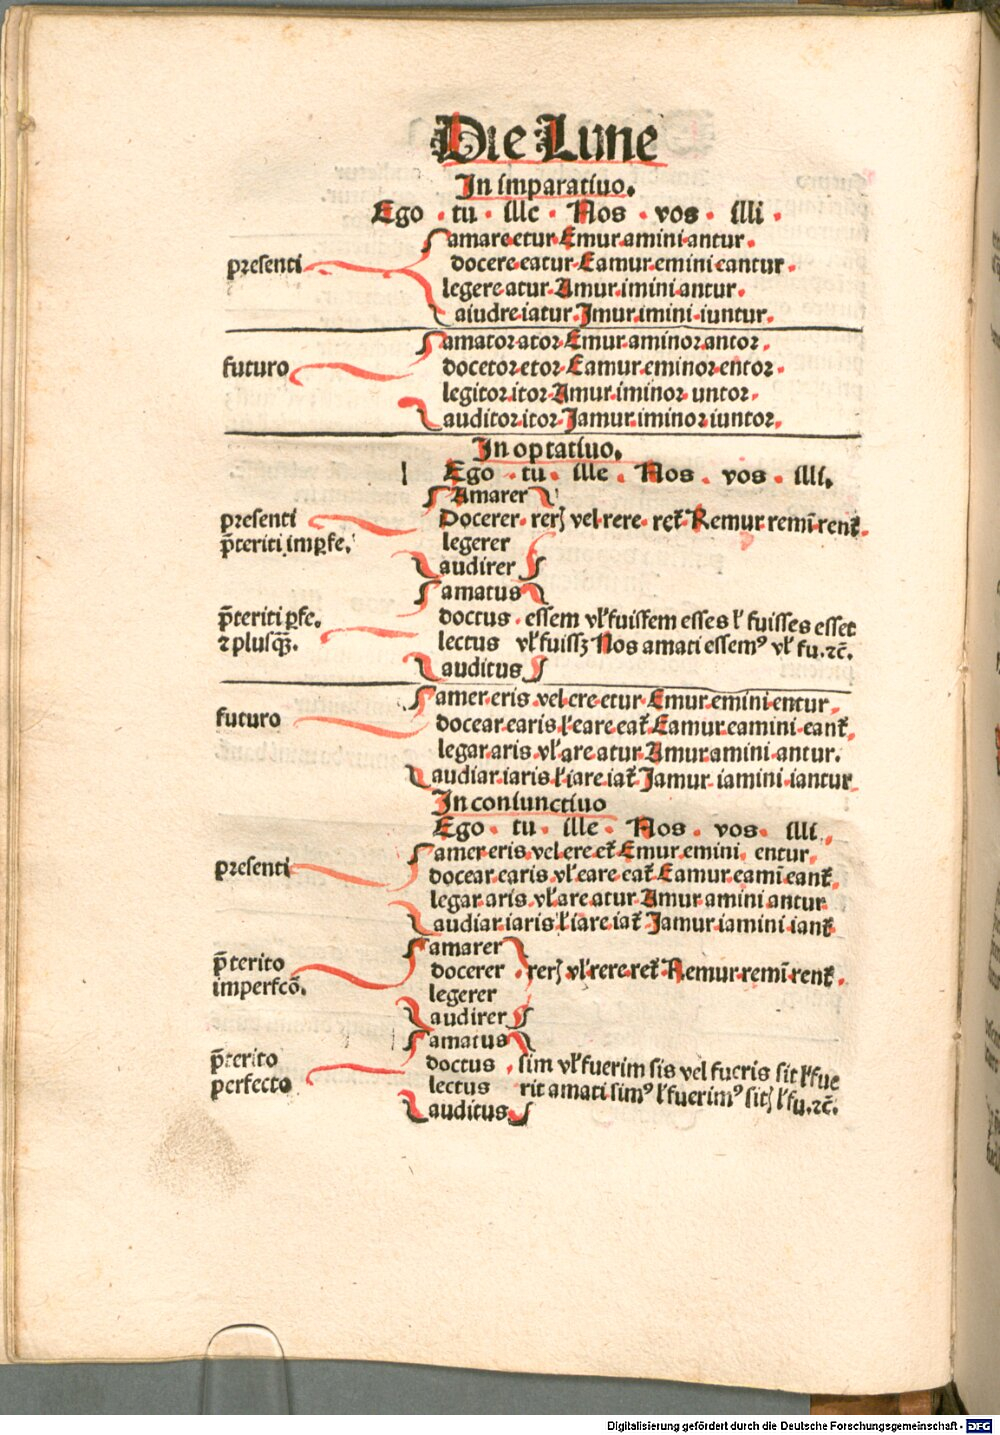 Die Lune
In imparatiuo.
Ego · tu · ille · Nos · vos · illi ·
amare·etur·Emur·amini·antur·
presenti docere·eatur·Eamur·emini·eantur·
legere·atur·Amur·imini·antur·
aiudre·iatur·Imur·imini·iuntur·
amator·ator·Emur·aminor·antor·
futuro docetor·etor·Eamur·eminor·entor·
legitor·itor·Amur·iminor·untor·
auditor·itor·Iamur·iminor·iuntor·
In optatiuo.
Ego · tu · ille · Nos · vos · illi.
Amarer
presenti Docerer· rerꝭ vel·rere· ret᷑·Remur·remī·rent᷑·
p̄teriti imꝑfe. legerer
audirer
amatus
p̄teriti ꝑfe. doctus · essem vl̕ fuissem esses l̕ fuisses esset
⁊ plusq̄ꝫ. lectus vl̕ fuissꝫ Nos amati essemꝰ vl̕ fu.⁊c̄.
auditus
amer·eris·vel·ere·etur·Emur·emini·entur·
futuro docear·earis·l̕·eare·eat᷑·Eamur·eamini·eant᷑·
legar·aris·vl̕·are·atur·Amur·amini·antur·
audiar·iaris·l̕·iare·iat᷑·Iamur·iamini·iantur
In coniunctiuo
Ego · tu · ille · Nos · vos · illi ·
amer·eris·vel·ere·et᷑·Emur·emini· entur·
presenti docear·earis·vl̕·eare·eat᷑·Eamur·eamī·eant᷑·
legar·aris·vl̕·are·atur·Amur·amini·antur
audiar·iaris·l̕·iare·iat᷑·Iamur·iamini·iant᷑
amarer
p̄terito docerer · rerꝭ vl̕·rere·ret᷑·Remur·remī·rent᷑·
imperfcō. legerer
audirer
amatus
p̄terito doctus · sim vl̕ fuerim sis vel fueris sit l̕ fue
perfecto lectus rit amati simꝰ l̕ fuerimꝰ sitꝭ l̕ fu.⁊c̄.
auditus
Digitalisierung gefördert durch die Deutsche Forschungsgemeinschaft - DFG